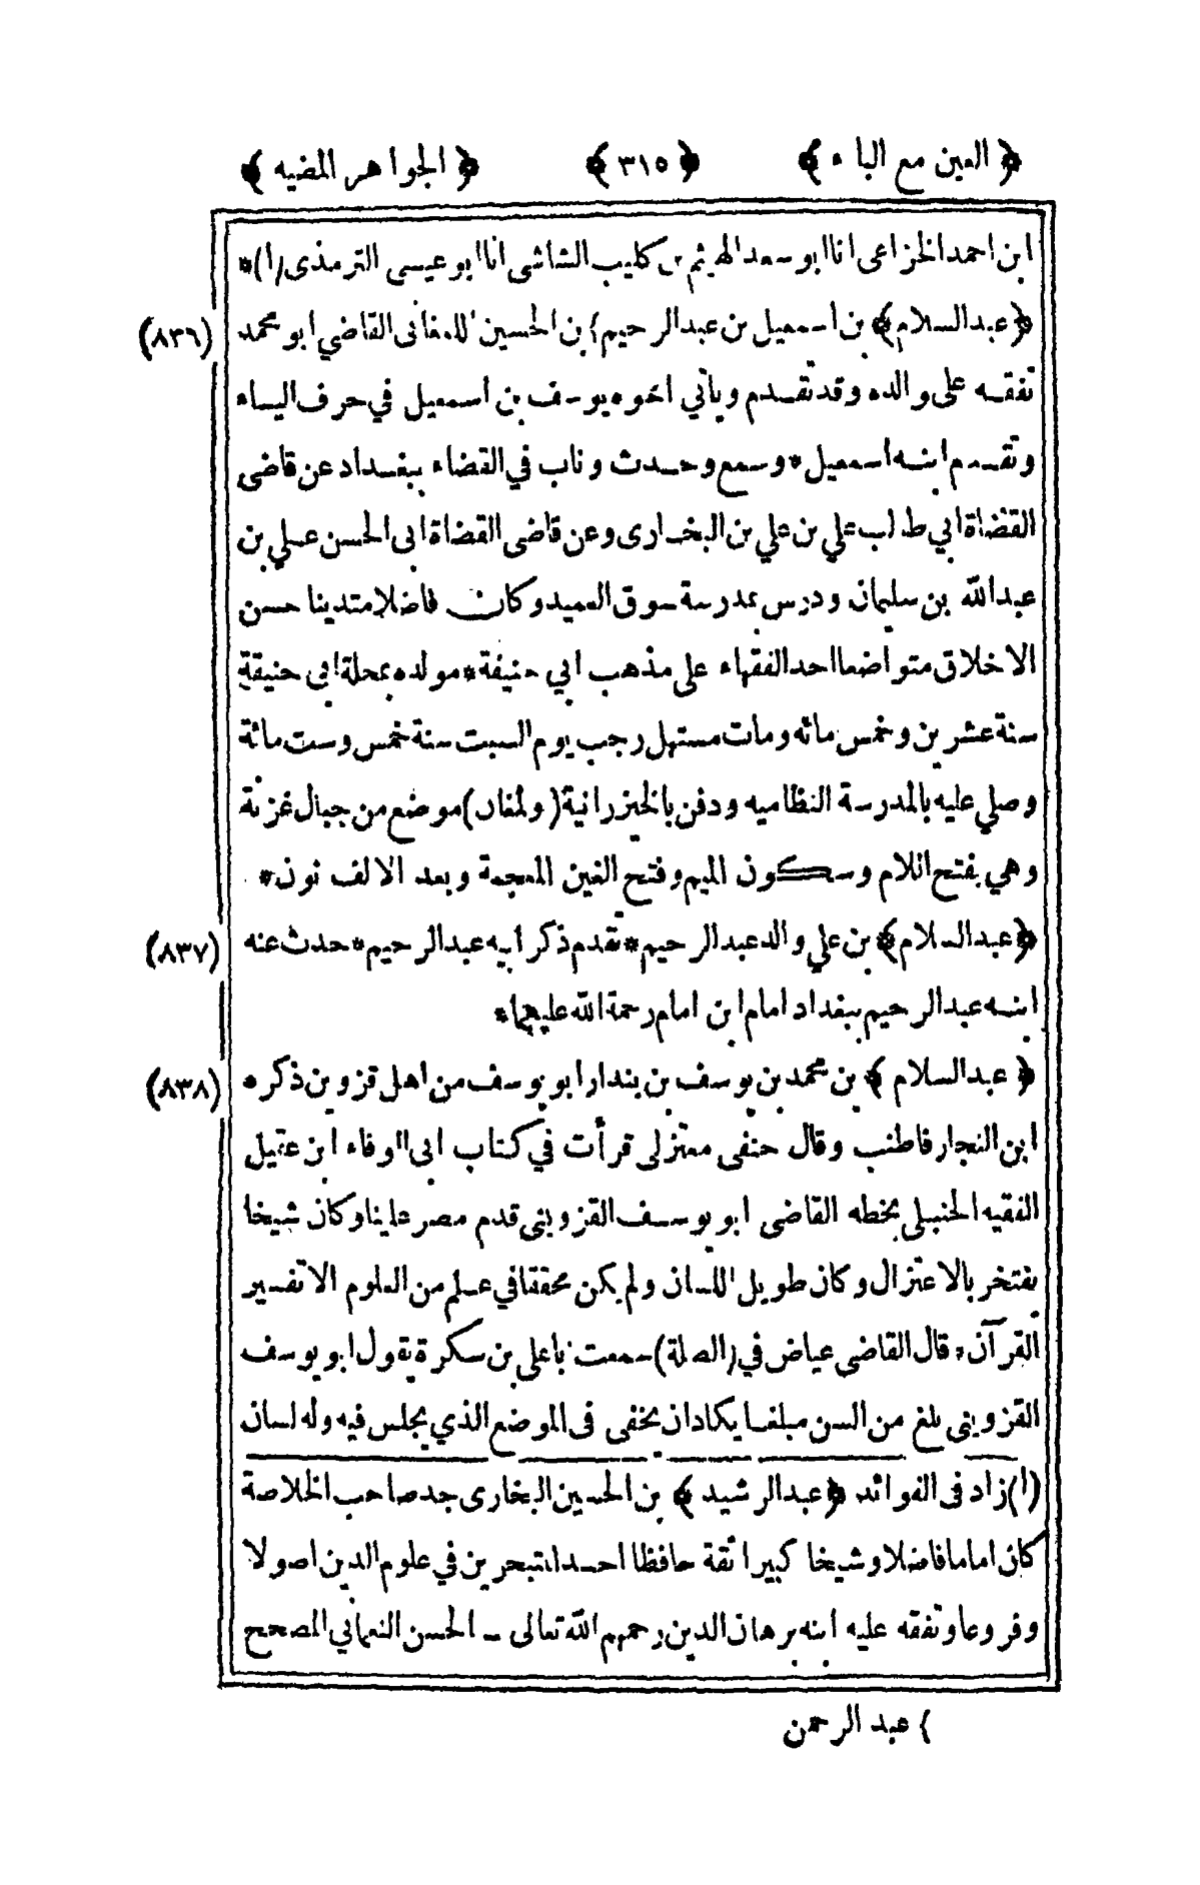 ﴿العين مع الباء﴾ ﴿٣١٥﴾ ﴿الجواهر المضيه﴾
ابن احمد الخزاعى انا ابو سعد الهيثم بن كليب الشاشى انا ابو عيسى الترمذى (١)*
(٨٣٦) ﴿عبد السلام﴾ بن اسمعيل بن عبد الرحيم} بن الحسين اللمغانى القاضي ابو محمد
تفقه على والده وقد تقدم ويأتي اخوه يوسف بن اسمعيل في حرف الياء
وتقدم ابنه اسمعيل* وسمع وحدث وناب في القضاء ببغداد عن قاضى
القضاة ابي طالب علي بن علي بن البخارى وعن قاضى القضاة ابى الحسن علي بن
عبد الله بن سليمان ودرس بمدرسة سوق العميد وكان فاضلا متدينا حسن
الاخلاق متواضعا احد الفقهاء على مذهب ابي حنيفة* مولده بمحلة ابي حنيفة
سنة عشرين وخمس مائه ومات مستهل رجب يوم السبت سنة خمس وست مائة
وصلي عليه بالمدرسة النظاميه ودفن بالخيزرانية (ولمغان) موضع من جبال غزنة
وهي بفتح اللام وسكون الميم وفتح الغين المعجمة وبعد الالف نون*
(٨٣٧) ﴿عبد السلام﴾ بن علي والد عبد الرحيم* تقدم ذكر ابيه عبد الرحيم* حدث عنه
ابنه عبد الرحيم ببغداد امام ابن امام رحمة الله عليهما*
(٨٣٨) ﴿عبد السلام﴾ بن محمد بن يوسف بن بندار ابو يوسف من اهل قزوين ذكره
ابن النجار فاطنب وقال حنفى معتزلى قرأت في كتاب ابى الوفاء ابن عقيل
الفقيه الحنبلى بخطه القاضى ابو يوسف القزوينى قدم مصر علينا وكان شيخا
يفتخر بالاعتزال وكان طويل اللسان ولم يكن محققا في علم من العلوم الا تفسير
القرآن* قال القاضى عياض في (الصلة) سمعت ابا على بن سكرة يقول ابو يوسف
القزوينى بلغ من السن مبلغا يكاد ان يخفى فى الموضع الذي يجلس فيه وله لسان
(١) زاد فى الفوائد ﴿عبد الرشيد﴾ بن الحسين البخارى جد صاحب الخلاصة
كان اماما فاضلا وشيخا كبيرا ثقة حافظا احد المتبحرين في علوم الدين اصولا
وفروعا وتفقه عليه ابنه برهان الدين رحمهم الله تعالى ــ الحسن النعماني المصحح
} عبد الرحمن